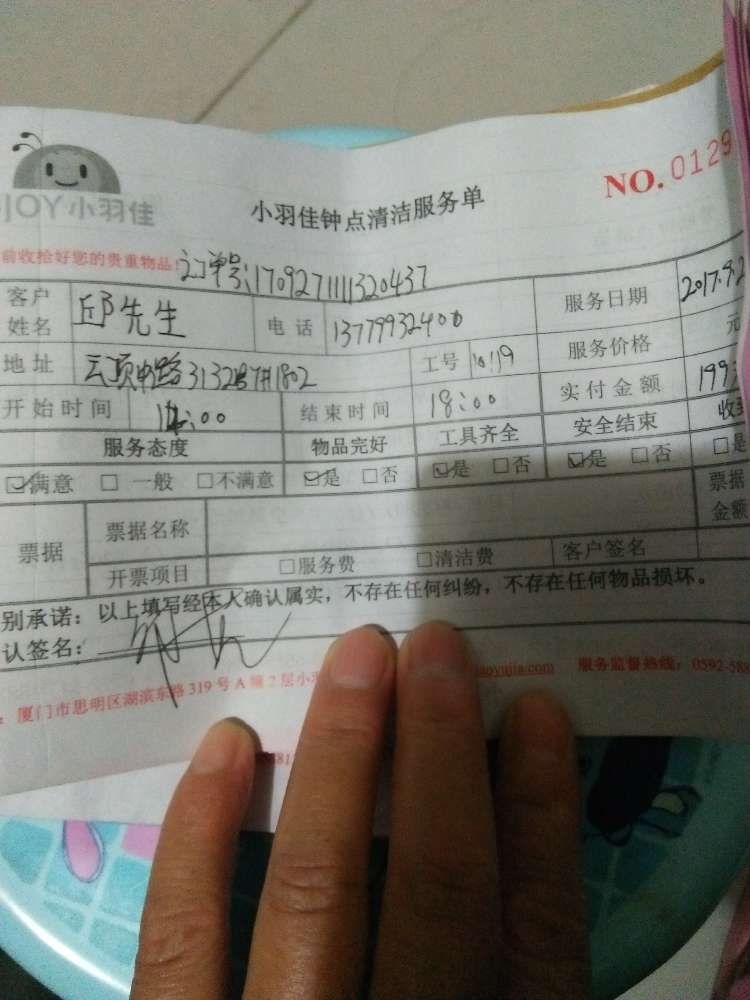 JOY小羽佳
小羽佳钟点清洁服务单
NO.0129
前收拾好您的贵重物品!
订单号:170927111320437
客户姓名 邱先生 电话 13779932400 服务日期 2017.9.2
地址 云顶中路3132号7#1802 工号 1019 服务价格 元
开始时间 14:00 结束时间 18:00 实付金额 199
服务态度 物品完好 工具齐全 安全结束 收
☑满意 □一般 □不满意 ☑是 □否 ☑是 □否 ☑是 □否 □是
票据 票据名称 票据金额
开票项目 □服务费 □清洁费 客户签名
别承诺:以上填写经本人确认属实,不存在任何纠纷,不存在任何物品损坏。
认签名:
:厦门市思明区湖滨东路319号A幢2层小 aoyujia.com 服务监督热线:0592-588